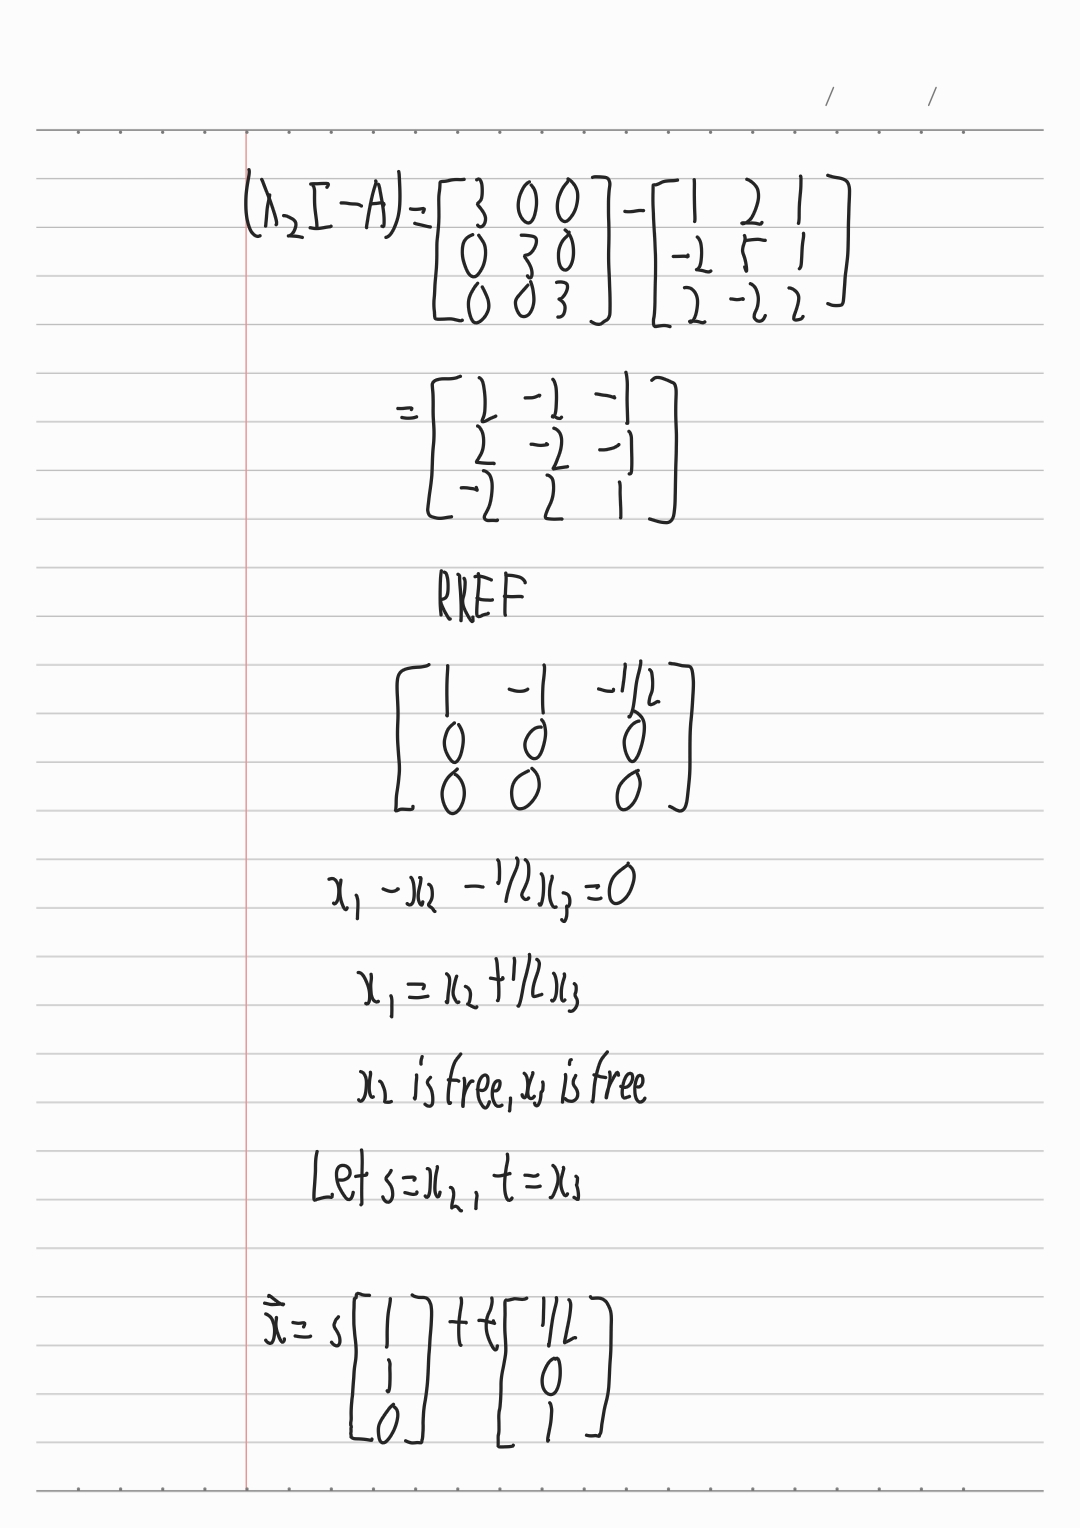 / /
(λ₂I-A) = [3 0 0] - [1 2 1]
[0 3 0] [-2 5 1]
[0 0 3] [2 -2 2]
= [2 -2 -1]
[2 -2 -1]
[-2 2 1]
RREF
[1 -1 -1/2]
[0 0 0]
[0 0 0]
x₁ - x₂ - 1/2x₃ = 0
x₁ = x₂ + 1/2x₃
x₂ is free, x₃ is free
Let s = x₂, t = x₃
x⃗ = s [1] + t [1/2]
[1] [0]
[0] [1]